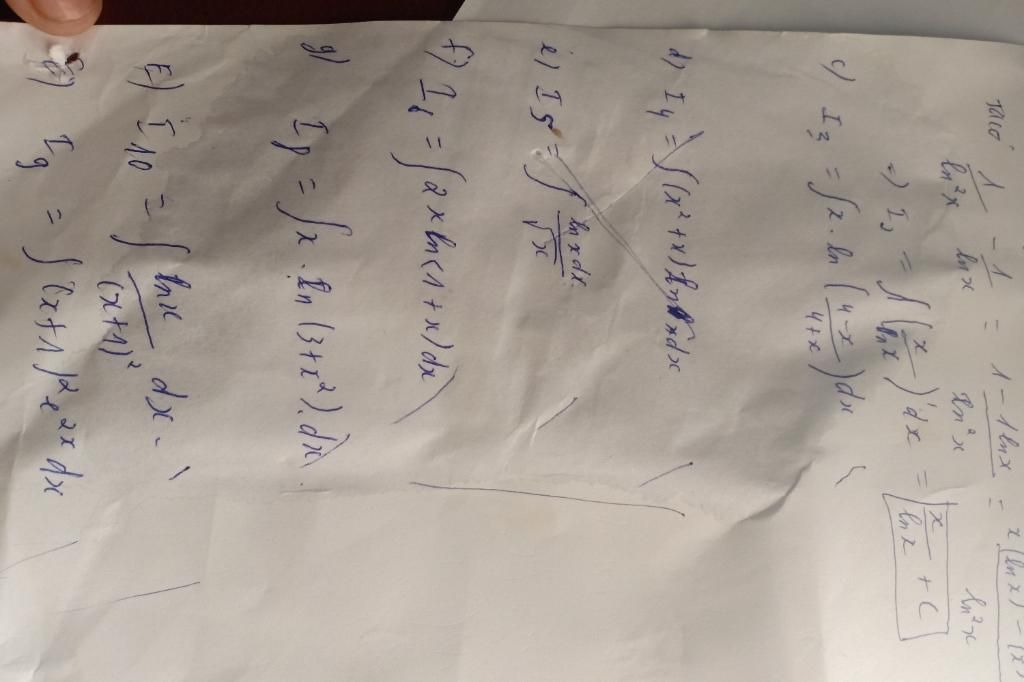 1/ln²x - 1/lnx = 1 - 1lnx/ln²x = x'(lnx) - (x)/ln²x
=) I₂ = ∫(x/lnx)'dx = x/lnx + C
c) I₃ = ∫x.ln(4-x/4+x)dx
d) I₄ = ∫(x²+x)lnxdx
e) I5 = ∫ lnxdx/√x
f) I₆ = ∫2xln(1+x)dx
g) I₈ = ∫x.ln(3+x²).dx
E) I10 = ∫ lnx/(x+1)² dx.
I₉ = ∫(x+1)²e²ˣdx